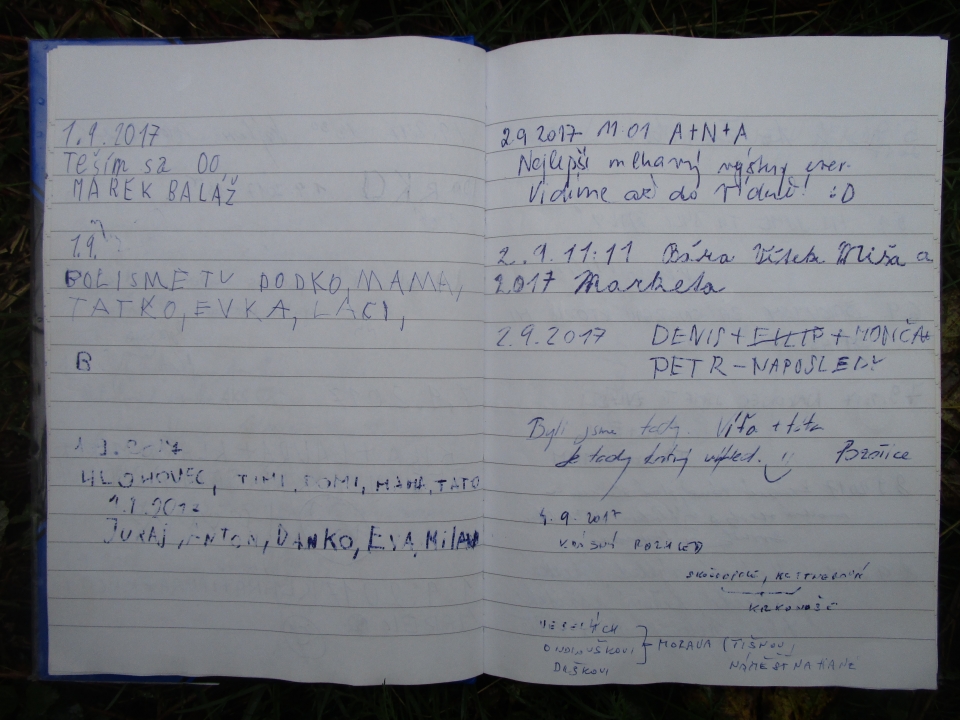 1.9.2017
TEŠÍM SA DO
MAREK BALÁŽ
1.9.
BOLI SME TU DODKO, MAMA,
TATKO, EVKA, LACI,
B
1.9.2017
HLOHOVEC, TIMI, TOMI, MAMA, TATO
1.9.2017
JURAJ, ANTON, DANKO, EVA, MILAN
2.9 2017 11:01 A+N+A
Nejlepší mlhavý výstup ever.
Vidíme až do :D
2.9. 11:11 Bára Vítek Míša a
2017 Marketa
2.9.2017 DENIS + FILIP + MONČA+
PETR - NAPOSLEDY
Byli jsme tady. Víťa + táta
Je tady krásný výhled. Brčnice
4.9.2017
KRÁSNÝ ROZHLED
KRKONOŠE
MORAVA (TIŠNOV,
DAŠKOVI NÁMĚŠŤ NA HANÉ